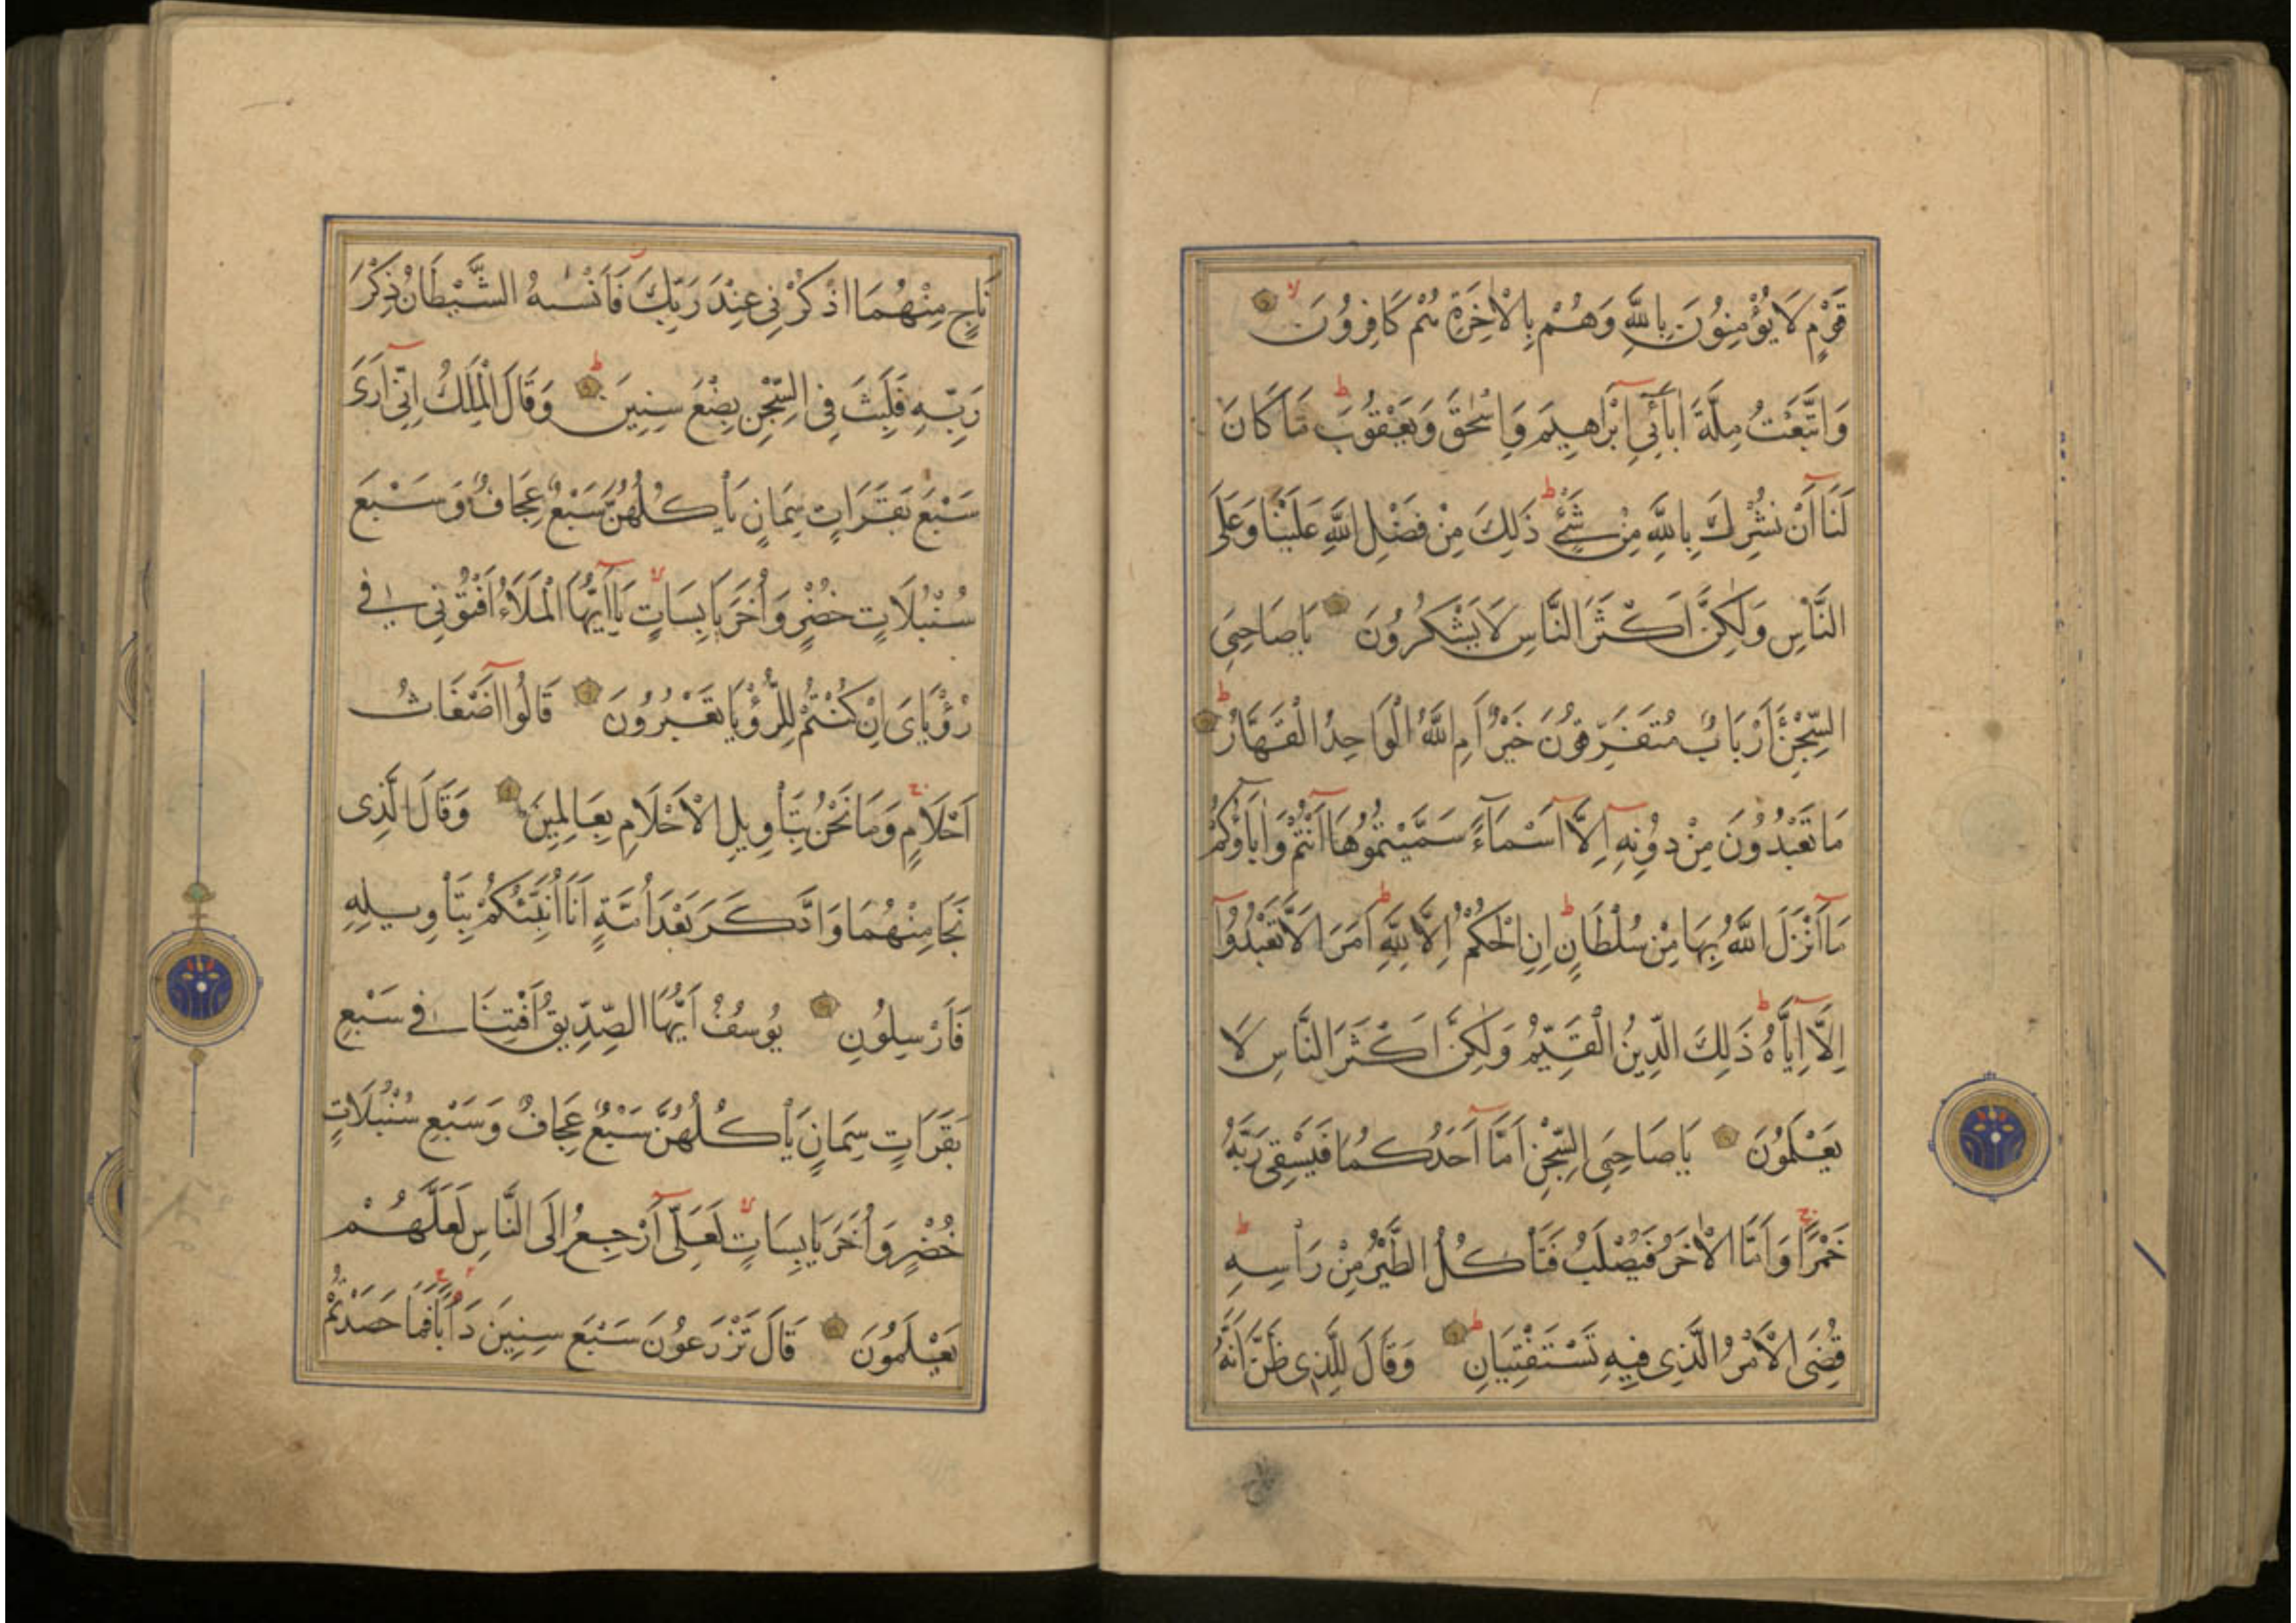 قَوْمٍ لَا يُؤْمِنُونَ بِاللّٰهِ وَهُمْ بِالْاٰخِرَةِ هُمْ كَافِرُونَ
وَاتَّبَعْتُ مِلَّةَ اٰبَآئِي اِبْرَاهِيمَ وَاِسْحٰقَ وَيَعْقُوبَ مَا كَانَ
لَنَا اَنْ نُشْرِكَ بِاللّٰهِ مِنْ شَيْءٍ ذَلِكَ مِنْ فَضْلِ اللّٰهِ عَلَيْنَا وَعَلَى
النَّاسِ وَلٰكِنَّ اَكْثَرَ النَّاسِ لَا يَشْكُرُونَ يَا صَاحِبَيِ
السِّجْنِ ءَاَرْبَابٌ مُتَفَرِّقُونَ خَيْرٌ اَمِ اللّٰهُ الْوَاحِدُ الْقَهَّارُ
مَا تَعْبُدُونَ مِنْ دُونِهِ اِلَّا اَسْمَآءً سَمَّيْتُمُوهَا اَنْتُمْ وَاٰبَآؤُكُمْ
مَا اَنْزَلَ اللّٰهُ بِهَا مِنْ سُلْطَانٍ اِنِ الْحُكْمُ اِلَّا لِلّٰهِ اَمَرَ اَلَّا تَعْبُدُوا
اِلَّا اِيَّاهُ ذَلِكَ الدِّينُ الْقَيِّمُ وَلٰكِنَّ اَكْثَرَ النَّاسِ لَا
يَعْلَمُونَ يَا صَاحِبَيِ السِّجْنِ اَمَّا اَحَدُكُمَا فَيَسْقِي رَبَّهُ
خَمْرًا وَاَمَّا الْاٰخَرُ فَيُصْلَبُ فَتَأْكُلُ الطَّيْرُ مِنْ رَأْسِهِ
قُضِيَ الْاَمْرُ الَّذِي فِيهِ تَسْتَفْتِيَانِ وَقَالَ لِلَّذِي ظَنَّ اَنَّهُ
نَاجٍ مِنْهُمَا اذْكُرْنِي عِنْدَ رَبِّكَ فَاَنْسٰىهُ الشَّيْطَانُ ذِكْرَ
رَبِّهِ فَلَبِثَ فِي السِّجْنِ بِضْعَ سِنِينَ وَقَالَ الْمَلِكُ اِنِّي اَرَى
سَبْعَ بَقَرَاتٍ سِمَانٍ يَأْكُلُهُنَّ سَبْعٌ عِجَافٌ وَسَبْعَ
سُنْبُلَاتٍ خُضْرٍ وَاُخَرَ يَابِسَاتٍ يَا اَيُّهَا الْمَلَأُ اَفْتُونِي فِي
رُؤْيَايَ اِنْ كُنْتُمْ لِلرُّؤْيَا تَعْبُرُونَ قَالُوا اَضْغَاثُ
اَحْلَامٍ وَمَا نَحْنُ بِتَأْوِيلِ الْاَحْلَامِ بِعَالِمِينَ وَقَالَ الَّذِي
نَجَا مِنْهُمَا وَادَّكَرَ بَعْدَ اُمَّةٍ اَنَا اُنَبِّئُكُمْ بِتَأْوِيلِهِ
فَاَرْسِلُونِ يُوسُفُ اَيُّهَا الصِّدِّيقُ اَفْتِنَا فِي سَبْعِ
بَقَرَاتٍ سِمَانٍ يَأْكُلُهُنَّ سَبْعٌ عِجَافٌ وَسَبْعِ سُنْبُلَاتٍ
خُضْرٍ وَاُخَرَ يَابِسَاتٍ لَعَلِّي اَرْجِعُ اِلَى النَّاسِ لَعَلَّهُمْ
يَعْلَمُونَ قَالَ تَزْرَعُونَ سَبْعَ سِنِينَ دَاَبًا فَمَا حَصَدْتُمْ